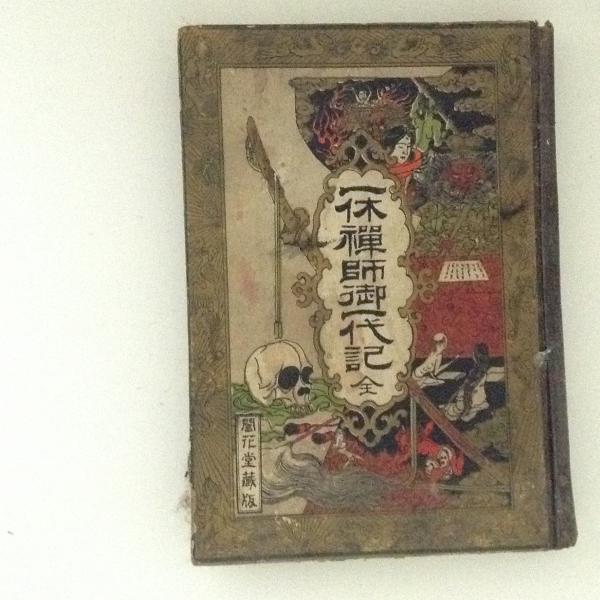 一休禪師御一代記 全
誾花堂藏版